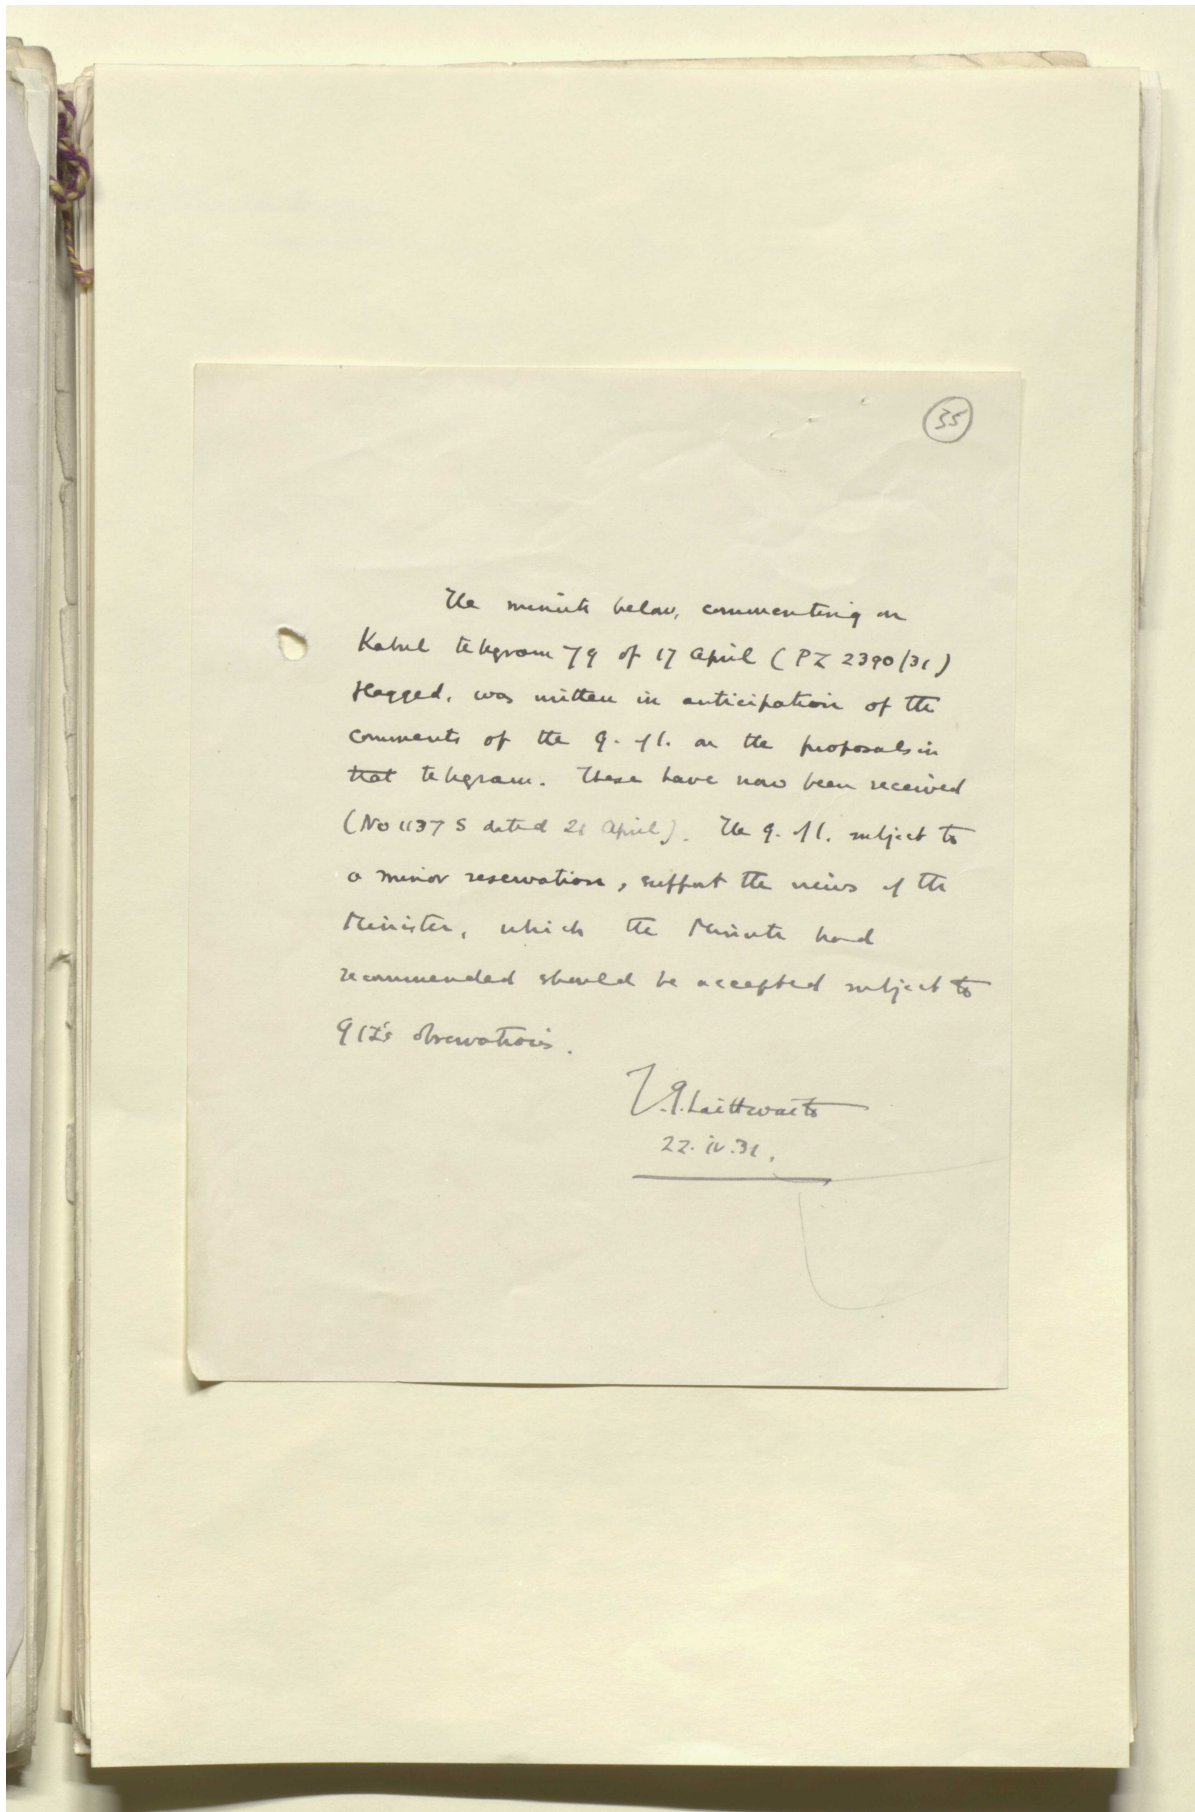 35
The minute below, commenting on
Kabul telegram 79 of 17 April (PZ 2390/31)
flagged, was written in anticipation of the
comments of the G. of I. on the proposals in
that telegram. These have now been received
(No 1137 S dated 21 April). The G. of I. subject to
a minor reservation, support the views of the
Minister, which the Minute had
recommended should be accepted subject to
G of I's observations.
J.G. Laithwaite
22.iv.31.